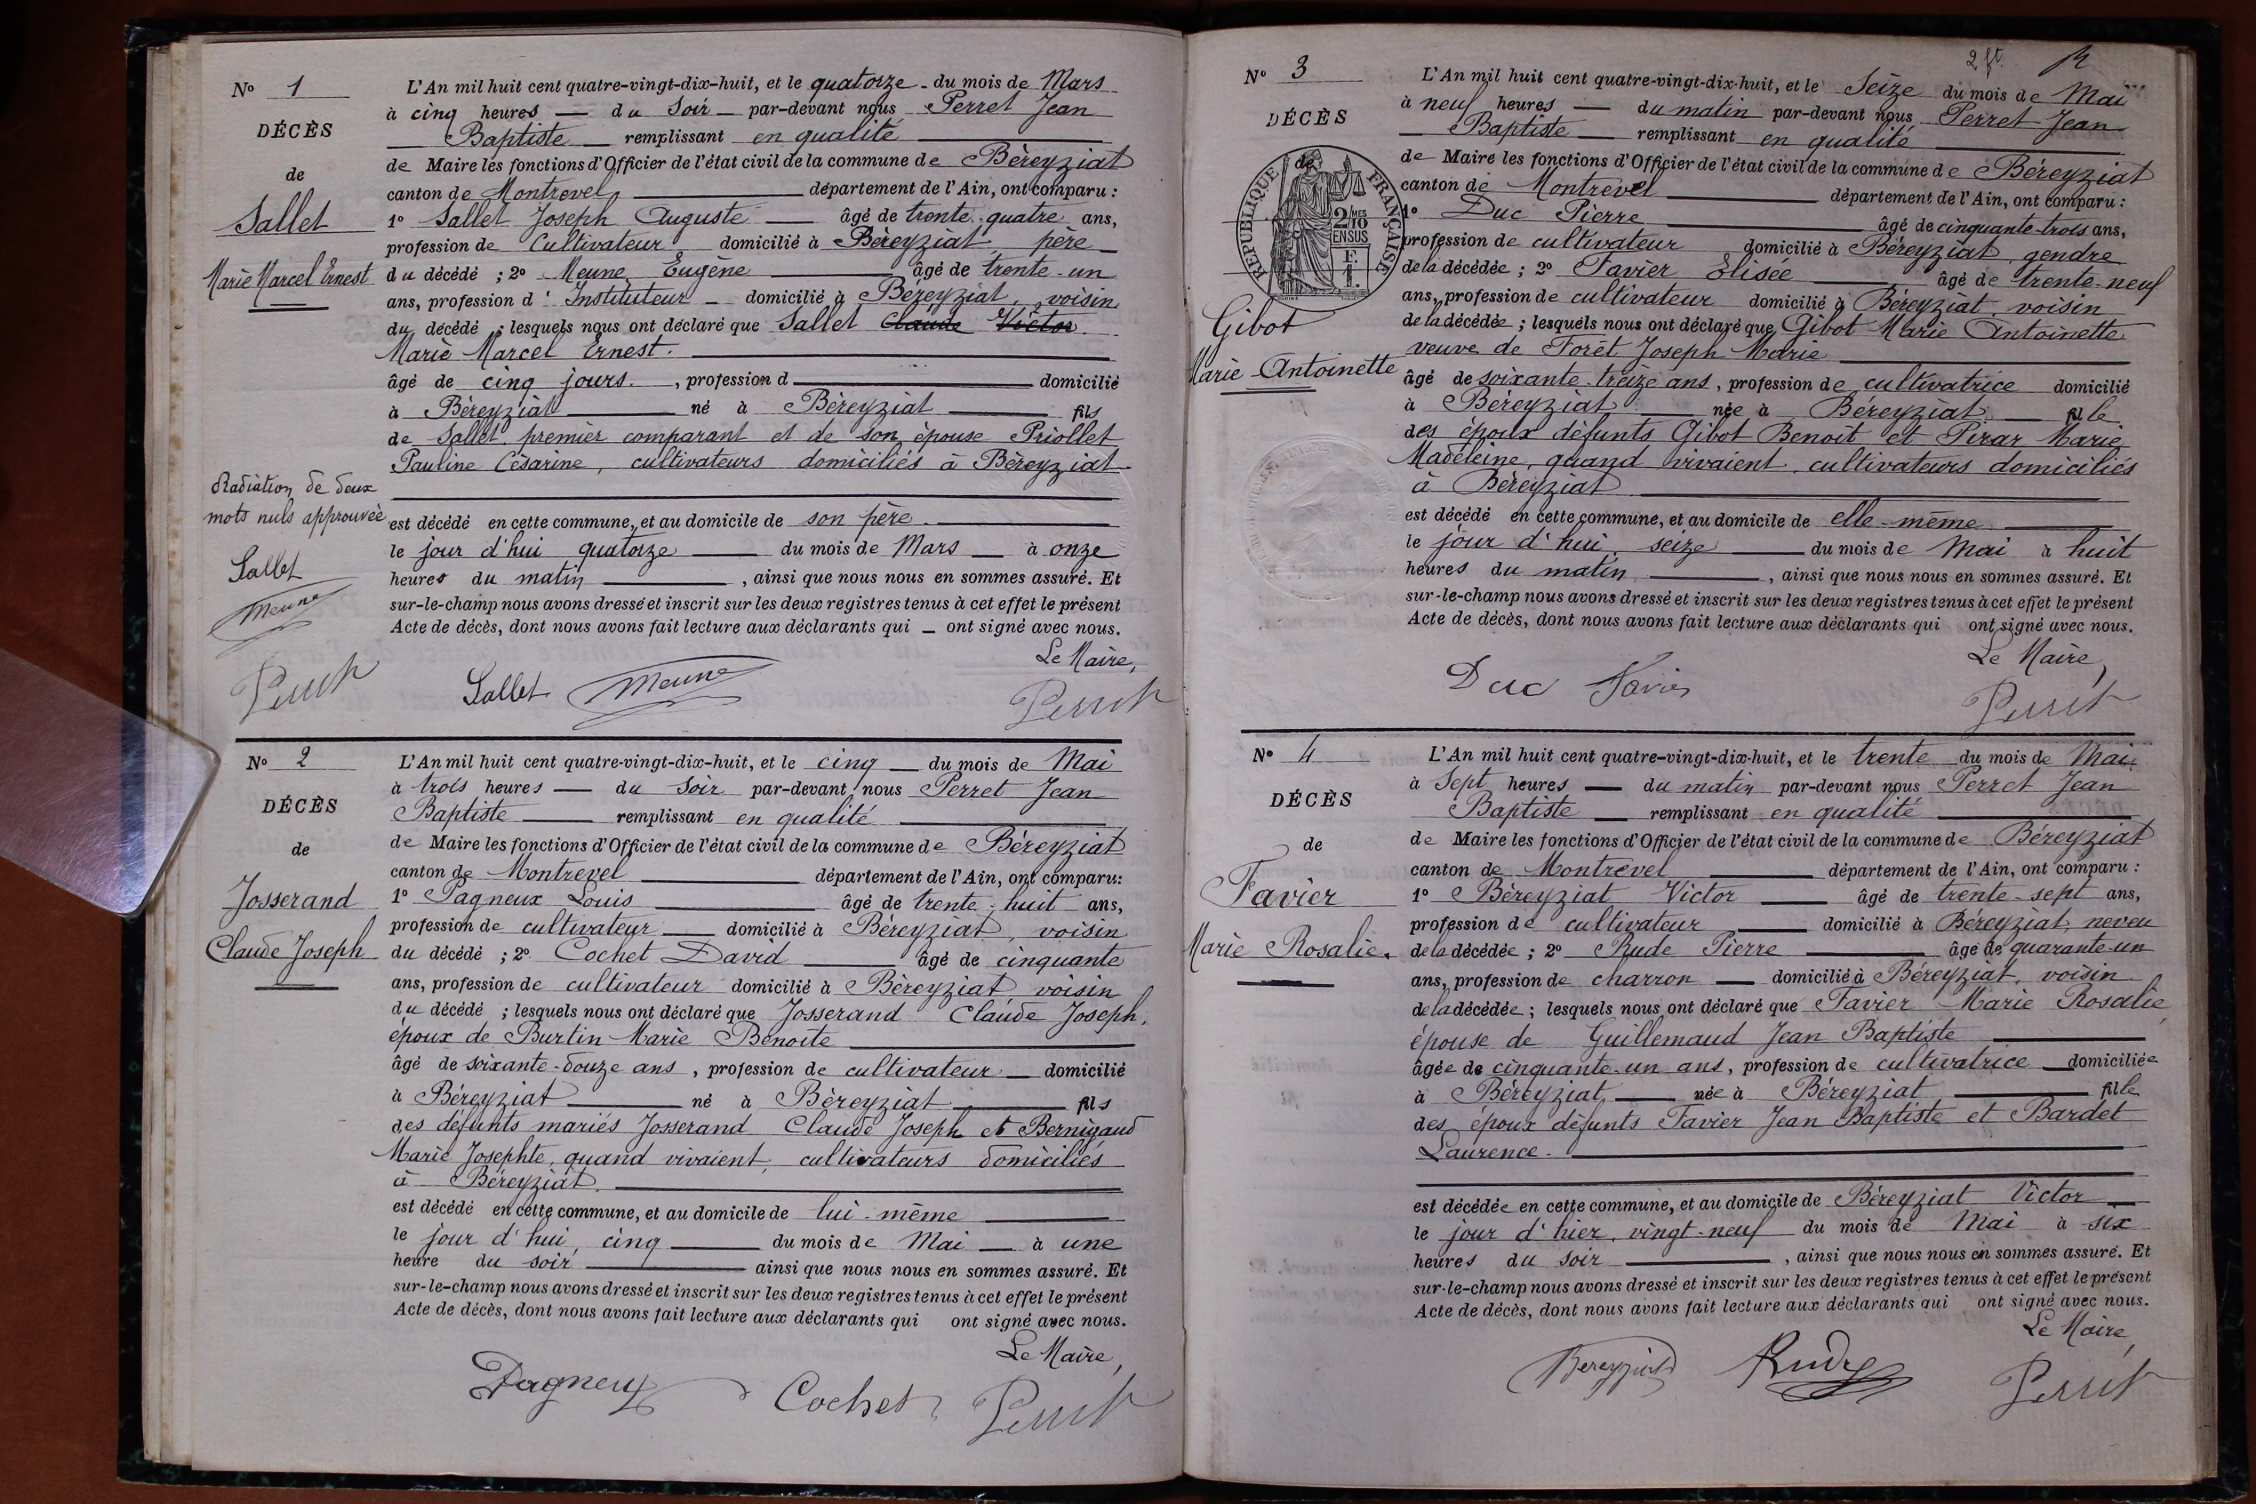 N° 1
DÉCÈS
de
Sallet
Marie Marcel Ernest
Radiation de deux
mots nuls approuvée
Sallet
Meune
Perret
L'An mil huit cent quatre-vingt-dix-huit, et le quatorze du mois de Mars
à cinq heures du Soir par-devant nous Perret Jean
Baptiste remplissant en qualité
de Maire les fonctions d'Officier de l'état civil de la commune de Béreyziat
canton de Montrevel département de l'Ain, ont comparu :
1° Sallet Joseph Auguste âgé de trente-quatre ans,
profession de Cultivateur domicilié à Béreyziat, père
du décédé ; 2° Meune Eugène âgé de trente-un
ans, profession d'Instituteur domicilié à Béreyziat, voisin
du décédé ; lesquels nous ont déclaré que Sallet Claude Victor
Marie Marcel Ernest.
âgé de cinq jours, profession d domicilié
à Béreyziat né à Béreyziat fils
de Sallet premier comparant et de son épouse Priollet
Pauline Césarine, cultivateurs domiciliés à Béreyziat
est décédé en cette commune, et au domicile de son père
le jour d'hui quatorze du mois de Mars à onze
heures du matin, ainsi que nous nous en sommes assuré. Et
sur-le-champ nous avons dressé et inscrit sur les deux registres tenus à cet effet le présent
Acte de décès, dont nous avons fait lecture aux déclarants qui ont signé avec nous.
Le Maire,
Sallet Meune Perret
N° 2
DÉCÈS
de
Josserand
Claude Joseph
L'An mil huit cent quatre-vingt-dix-huit, et le cinq du mois de Mai
à trois heures du Soir par-devant nous Perret Jean
Baptiste remplissant en qualité
de Maire les fonctions d'Officier de l'état civil de la commune de Béreyziat
canton de Montrevel département de l'Ain, ont comparu :
1° Pagneux Louis âgé de trente-huit ans,
profession de cultivateur domicilié à Béreyziat, voisin
du décédé ; 2° Cochet David âgé de cinquante
ans, profession de cultivateur domicilié à Béreyziat voisin
du décédé ; lesquels nous ont déclaré que Josserand Claude Joseph,
époux de Burtin Marie Benoîte
âgé de soixante-douze ans, profession de cultivateur domicilié
à Béreyziat né à Béreyziat fils
des défunts mariés Josserand Claude Joseph et Bernigaud
Marie Josephte, quand vivaient, cultivateurs domiciliés
à Béreyziat.
est décédé en cette commune, et au domicile de lui-même
le jour d'hui, cinq du mois de Mai à une
heure du soir ainsi que nous nous en sommes assuré. Et
sur-le-champ nous avons dressé et inscrit sur les deux registres tenus à cet effet le présent
Acte de décès, dont nous avons fait lecture aux déclarants qui ont signé avec nous.
Le Maire,
Pagneux Cochet Perret
N° 3
DÉCÈS
de
RÉPUBLIQUE FRANÇAISE
2/10
MES
EN SUS
Gibot
Marie Antoinette
L'An mil huit cent quatre-vingt-dix-huit, et le Seize du mois de Mai
à neuf heures du matin par-devant nous Perret Jean
Baptiste remplissant en qualité
de Maire les fonctions d'Officier de l'état civil de la commune de Béreyziat
canton de Montrevel département de l'Ain, ont comparu :
1° Duc Pierre âgé de cinquante-trois ans,
profession de cultivateur domicilié à Béreyziat, gendre
de la décédée ; 2° Favier Elisée âgé de trente-neuf
ans, profession de cultivateur domicilié à Béreyziat, voisin
de la décédée ; lesquels nous ont déclaré que Gibot Marie Antoinette
veuve de Forêt Joseph Marie
âgé de soixante-treize ans, profession de cultivatrice domicilié
à Béreyziat née à Béreyziat fille
des époux défunts Gibot Benoît et Pirar Marie
Madeleine, quand vivaient, cultivateurs domiciliés
à Béreyziat
est décédé en cette commune, et au domicile de elle-même
le jour d'hui, seize du mois de Mai à huit
heures du matin, ainsi que nous nous en sommes assuré. Et
sur-le-champ nous avons dressé et inscrit sur les deux registres tenus à cet effet le présent
Acte de décès, dont nous avons fait lecture aux déclarants qui ont signé avec nous.
Le Maire,
Duc Favier Perret
N° 4
DÉCÈS
de
Favier
Marie Rosalie.
L'An mil huit cent quatre-vingt-dix-huit, et le trente du mois de Mai
à Sept heures du matin par-devant nous Perret Jean
Baptiste remplissant en qualité
de Maire les fonctions d'Officier de l'état civil de la commune de Béreyziat
canton de Montrevel département de l'Ain, ont comparu :
1° Béreyziat Victor âgé de trente-sept ans,
profession de cultivateur domicilié à Béreyziat, neveu
de la décédée ; 2° Rude Pierre âgé de quarante-un
ans, profession de charron domicilié à Béreyziat, voisin
de la décédée ; lesquels nous ont déclaré que Favier Marie Rosalie
épouse de Guillemaud Jean Baptiste
âgée de cinquante-un ans, profession de cultivatrice domiciliée
à Béreyziat née à Béreyziat fille
des époux défunts Favier Jean Baptiste et Bardet
Laurence.
est décédée en cette commune, et au domicile de Béreyziat Victor
le jour d'hier, vingt-neuf du mois de Mai à six
heures du soir, ainsi que nous nous en sommes assuré. Et
sur-le-champ nous avons dressé et inscrit sur les deux registres tenus à cet effet le présent
Acte de décès, dont nous avons fait lecture aux déclarants qui ont signé avec nous.
Le Maire,
Bereyziat Rude Perret